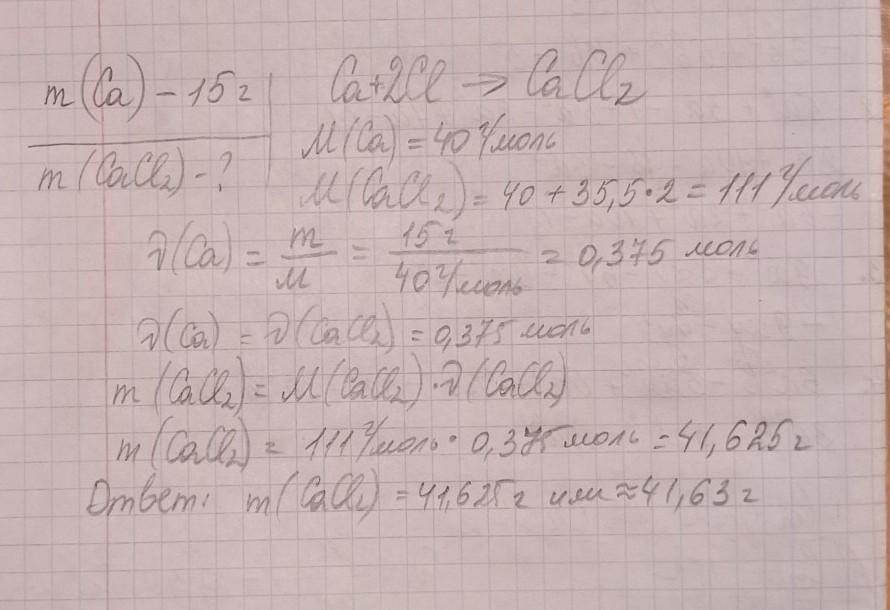 m(Ca) – 15г
m(CaCl₂) - ?
Ca+2Cl → CaCl₂
M(Ca) = 40 г/моль
M(CaCl₂) = 40 + 35,5 · 2 = 111 г/моль
ν(Ca) = m/M = 15 г/40 г/моль = 0,375 моль
ν(Ca) = ν(CaCl₂) = 0,375 моль
m(CaCl₂) = M(CaCl₂) · ν(CaCl₂)
m(CaCl₂) = 111 г/моль · 0,375 моль = 41,625 г
Ответ: m(CaCl₂) = 41,625 г или ≈ 41,63 г